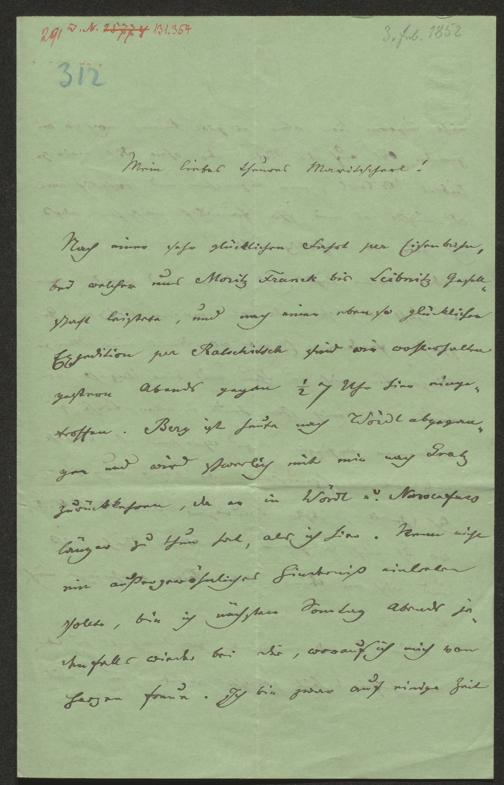 291 I. N. 25774 131.364
3. Feb. 1852
312
Mein liebes theures Marischerl!
Nach einer sehr glücklichen Fahrt per Eisenbahn,
bei welcher uns Moritz Franck bis Leibnitz Gesell-
schaft leistete, und nach einer ebenso glücklichen
Expedition per sind wir wohlbehalten
gestern Abends gegen ½ 7 Uhr hier einge-
troffen. Berg ist heute nach Wördl abgegan-
gen und wird schwerlich mit mir nach Gratz
zurückkehren, da er in Wördl u.
länger zu thun hat, als ich hier. Wenn nicht
ein außergewöhnliches Hinderniß eintreten
sollte, bin ich nächsten Sonntag Abends je-
denfalls wieder bei dir, worauf ich mich von
Herzen freue. Ich bin zwar auf einige Zeit